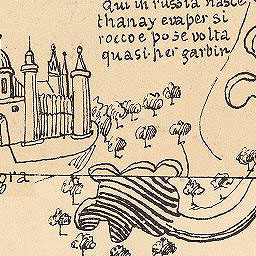 Qui in russia nasce
thanay eva per si
roccoe po se volta
quasi per garbin
ora